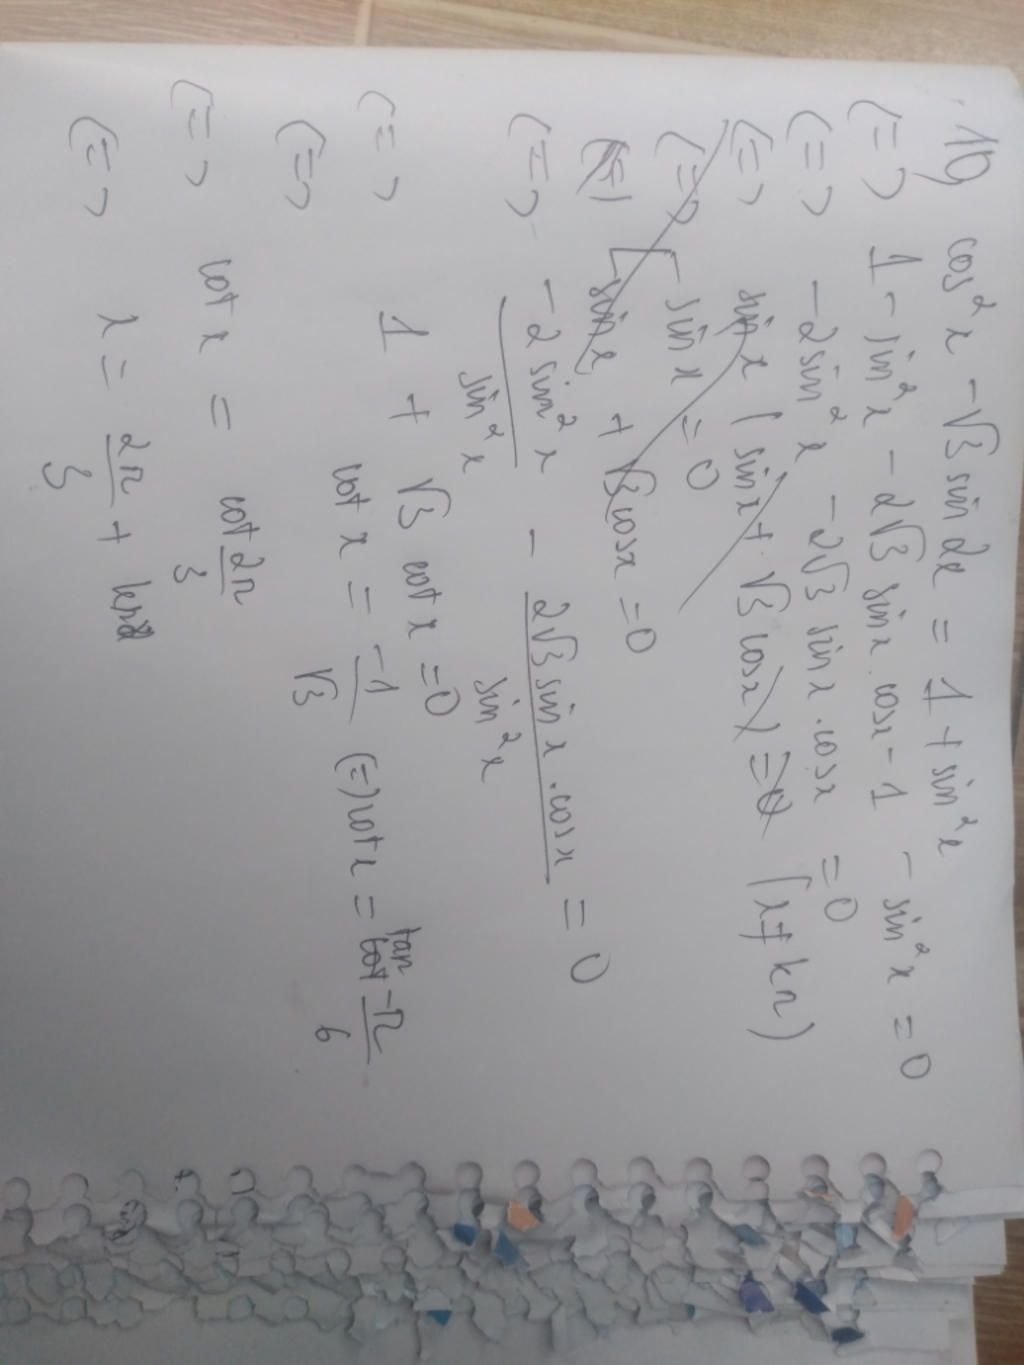 1b, cos²x - √3 sin 2x = 1 + sin²x
(=) 1 - sin²x - 2√3 sin x . cos x - 1 - sin²x = 0
(=) -2sin²x - 2√3 sin x . cos x = 0
(=) sin x ( sin x + √3 cos x ) = 0 (x ≠ kπ)
(=) [ sin x = 0
sin x + √3 cos x = 0
(=) -2 sin²x / sin²x - 2√3 sin x . cos x / sin²x = 0
(=) 1 + √3 cot x = 0
(=) cot x = -1/√3 (=) cot x = tan -π/6
(=) cot x = cot 2π/3
(=) x = 2π/3 + kπ